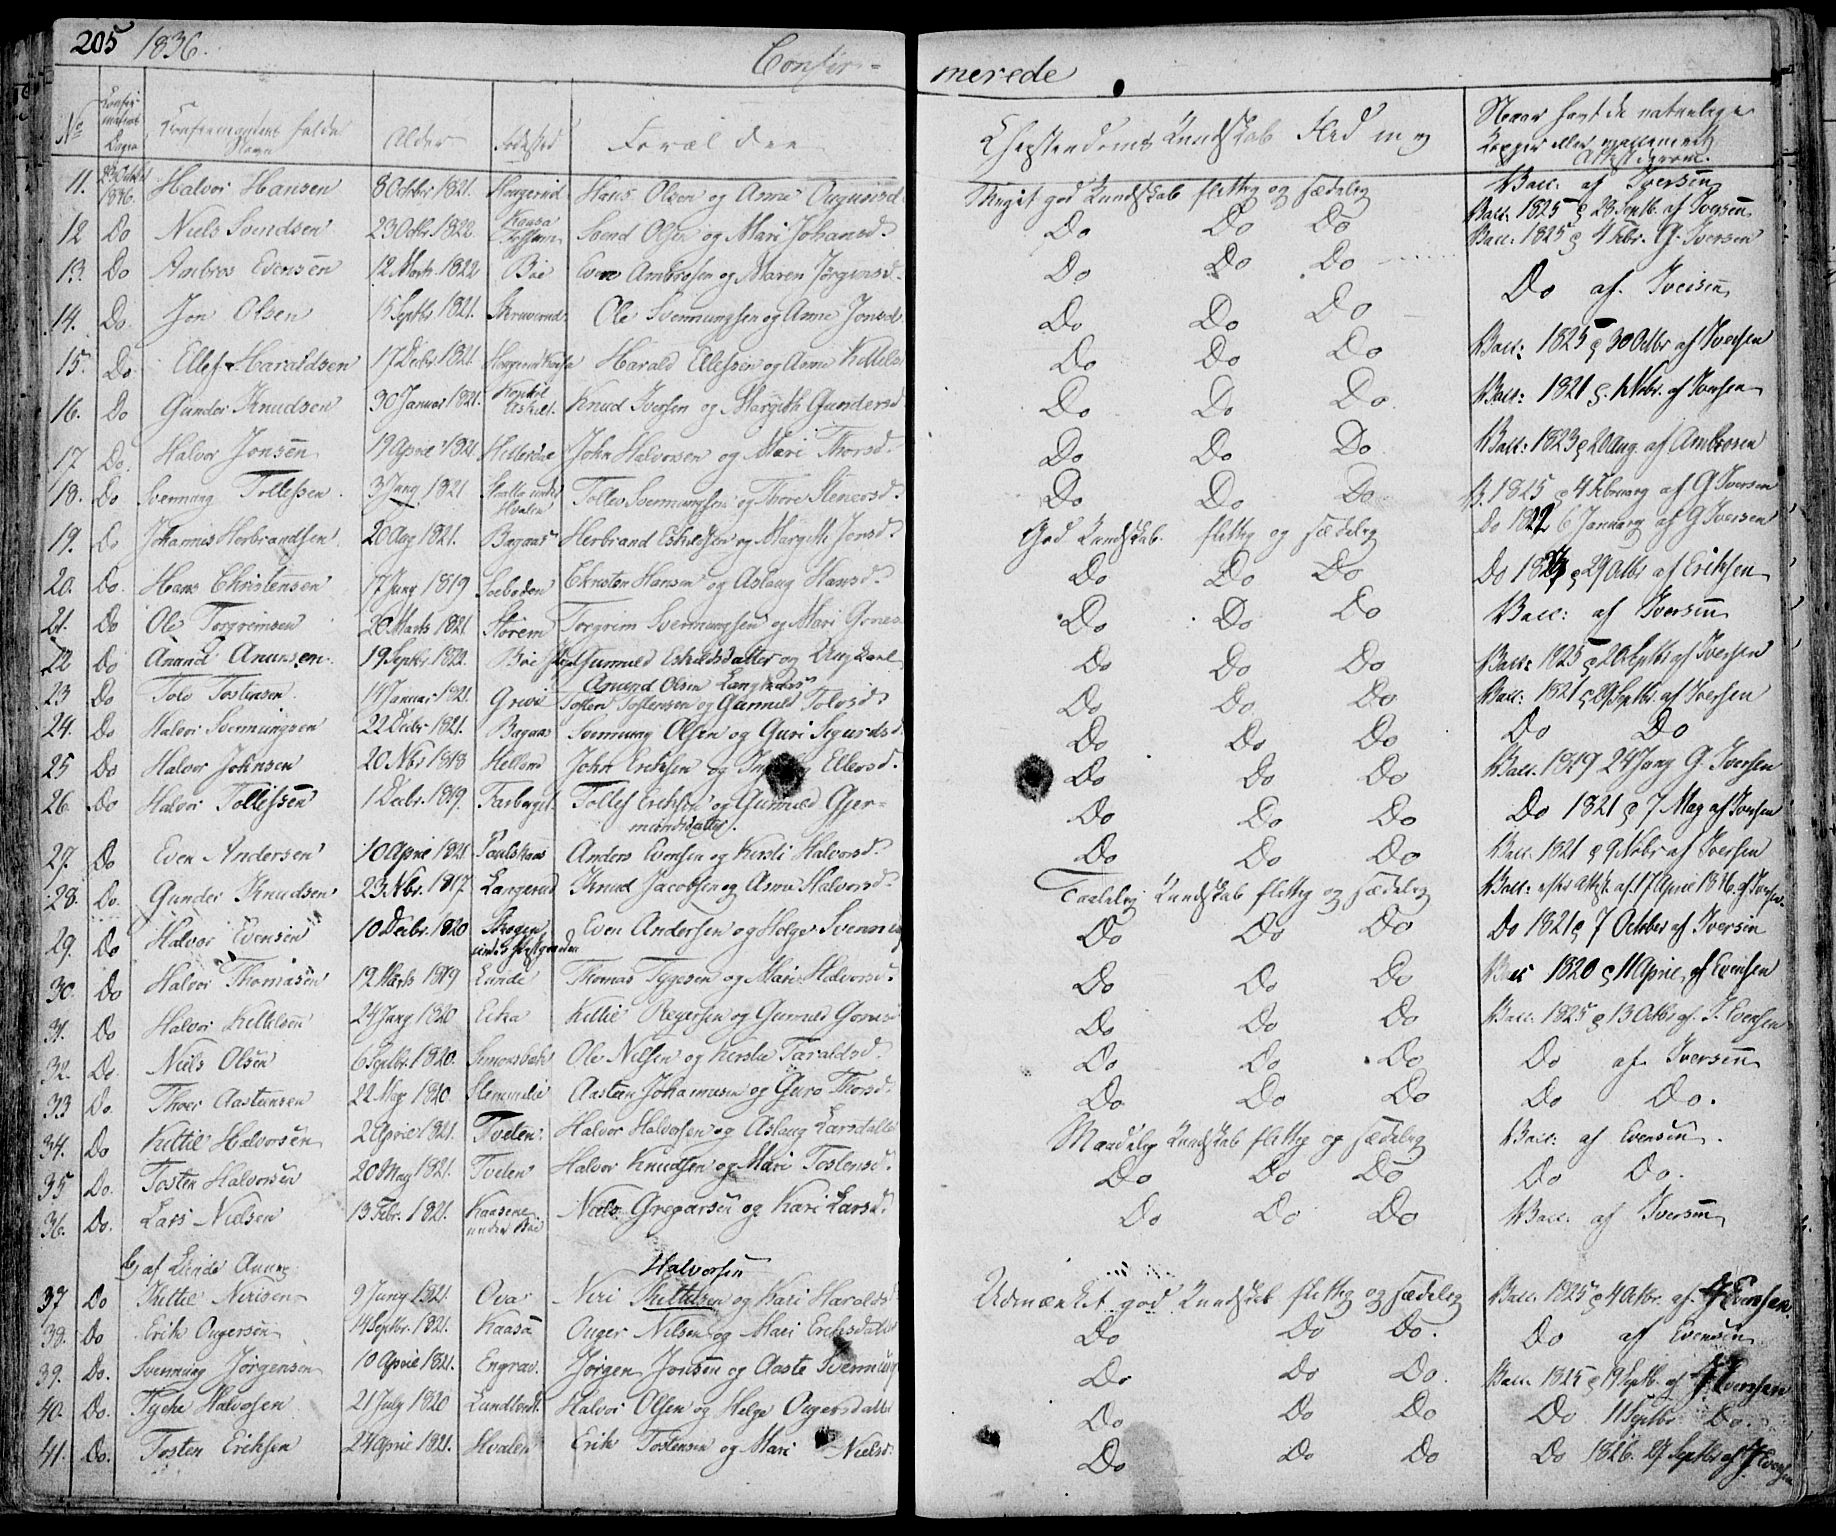 205 1836. Confir- merede
No Confirmations Dagen Confirmandens fulde Navn Alder Fødested Forældre Christendoms Kundskab Flid Naar havt de naturlige Kopper eller vaccineret Attest derom.
11. 23 Octbr 1836. Halvor Hansen 8 Octbr 1821. Haugerud Hans Olsen og Anne Meget god Kundskab flittig og sædelig Vacc. af Iversen
12 Do Niels Svendsen 23 Octr. 1822. Kaasa Svend Olsen og Mari Johansd. Do Do Do Vacc. 1825 28 Septb. af Iversen
13. Do Ambros Evensen 12 Marts 1822 Bøe Even Ambrosen og Maren Jørgensd. Do Do Do Vacc. 1825 4 Febr. G. Iversen
14. Do. Jon Olsen 15 Septbr 1821. Ole Svennungsen og Anne Jonsd. Do Do Do Do af Iversen
15. Do Ellef Haraldsen 17 Decbr. 1821. Harald Ellefsen og Anne Kittelsd Do Do Do Vacc: 1825 30 Octbr af Iversen
16. Do Gunder Knudsen 30 Januar 1821. Knud Iversen og Margith Gundersd Do Do Do Vacc: 1821 Nbr. af Iversen
17 Do. Halvor Jonsen 19 April 1821. John Halvorsen og Mari Thorsd. Do Do Do Vacc: 1823 20 Aug. af Ambrosen
18. Do Svennung Tollefsen. 3 Juny 1821 Hvalen Tollev Svennungsen og Thore Stenersd. Do Do Do V. 1825 4 February af G Iversen
19. Do Johannes Herbrandsen 26 Aug 1821. Bagaas Herbrand Eskildsen og Margith Jonsd. God Kundskab flittig og sædelig Do 1822 6 January af G Iversen
20. Do. Hans Christensen 17 Juny 1819 Soeboden Christen Hansen og Aslaug Hansd. Do Do Do Do 29 Octbr af Eriksen
21. Do Ole Torgrimsen 20 Marts 1821 Storem Torgrim Svennungsen og Mari Do Do Do Vacc: af Iversen
22 Do Anund Anunsen. 19 Septbr. 1822. Bøe Gunnild Eskildsdatter og Ungkarl Anund Olsen Do Do Do Vacc: 1825 26 Septbr af Iversen
23 Do Tolv Tostensen 14 Januar 1821. Grivi Tosten Tostensen og Gunnild Tolvsd. Do Do Do Vacc: 1821 29 Septbr. af Iversen
24. Do Halvor Svennungsen 22 Decbr 1821. Bagaas Svennung Olsen og Guri Sigurdsd. Do Do Do Do Do
25 Do Halvor Johnsen 20 Nbr 1818 John Eriksen og Ellevsd. Do Do Do Vacc. 1819 24 Juny G. Iversen
26. Do Halvor Tollefsen 1 Decbr. 1819. Tollef Eriksen og Gunnild Gjermundsdatter. Do Do Do Do 1821 7 May af Iversen
27. Do Even Andersen 10 April 1821 Anders Evensen og Kirsti Halvorsd. Do Do Do Vacc. 1821 9 Nobr af Iversen
28. Do. Gunder Knudsen 23 Nbr. 1817. Langerud Knud Jacobsen og Anne Halvorsd. Taalelig Kundskab flittig og sædelig Vacc: efter Attest af 17 April 1836. af Iversen
29. Do Halvor Evensen 10 Decbr. 1820 Skogen under Præstgaarden Even Andersen og Helge Svennung Do Do Do Do 1821 7 October af Iversen
30. Do Halvor Thomasen 19 Marts 1819 Lunde Thomas Tygesen og Mari Halvorsd. Do Do Do Vacc 1820 11 April af Evensen
31. Do Halvor Kittelsen 24 Juny 1820 Eika Kittil Reyersen og Gunnild Do Do Do Vacc. 1825 13 Octbr af. J. Evensen
32. Do. Niels Olsen 6 Septbr. 1820. Simonsbak Ole Nielsen og Kirstie Taraldsd. Do Do Do Do af Iversen
33 Do. Thoer Aastensen 22 May 1820. Aasten Johannesen og Guro Thorsd. Do Do Do Do Do.
34. Do Kittil Halvorsen 2 April 1821. Tveten. Halvor Halvorsen og Aslaug Larsdatter Maadelig Kundskab flittig og sædelig Vacc: af Evensen.
35 Do. Tosten Halvorsen 20 May 1821. Tveten Halvor Knudsen og Mari Tostensd. Do Do Do Do Do.
36. Do. Lars Nielsen 13 Febr. 1821. Kaasene under Bøe Niels Gregarsen og Kari Larsd. Do Do Do Vacc. af Iversen
b, af Lunde Annex
37 Do Kittil Nirisen 9 Juny 1821. Ova Niri Kittelsen Halvorsen og Kari Haralds Udmærket god Kundskab flittig og sædelig Vacc. 1825 4 Octbr. af. J Evensen
38. Do Erik Ougersen 14 Septbr. 1821. Kaasa Ouger Nilsen og Mari Eriksdatter Do Do Do. Do af Evensen
39. Do. Svennung Jørgensen 10 April 1821. Engrav. Jørgen Jonsen og Aaste Svennung Do Do Do. Vacc. 1825 19 Septb. af J Evensen
40. Do. Tycke Halvorsen 21 July 1820 Halvor Olsen og Helge Ougersdatter Do Do Do Do 11 Septbr Do.
41. Do. Tosten Eriksen 24 April 1821. Hvalen Erik Tostensen og Mari Nielsd. Do Do Do Do 1826. 27 Septbr af J Evensen